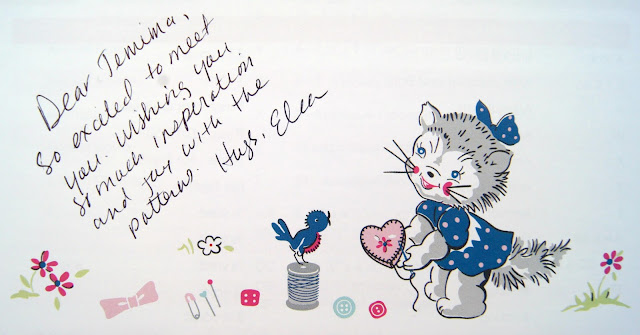 Dear Jemima,
So excited to meet
you. Wishing you
so much inspiration
and joy with the
patterns. Hugs, Elea